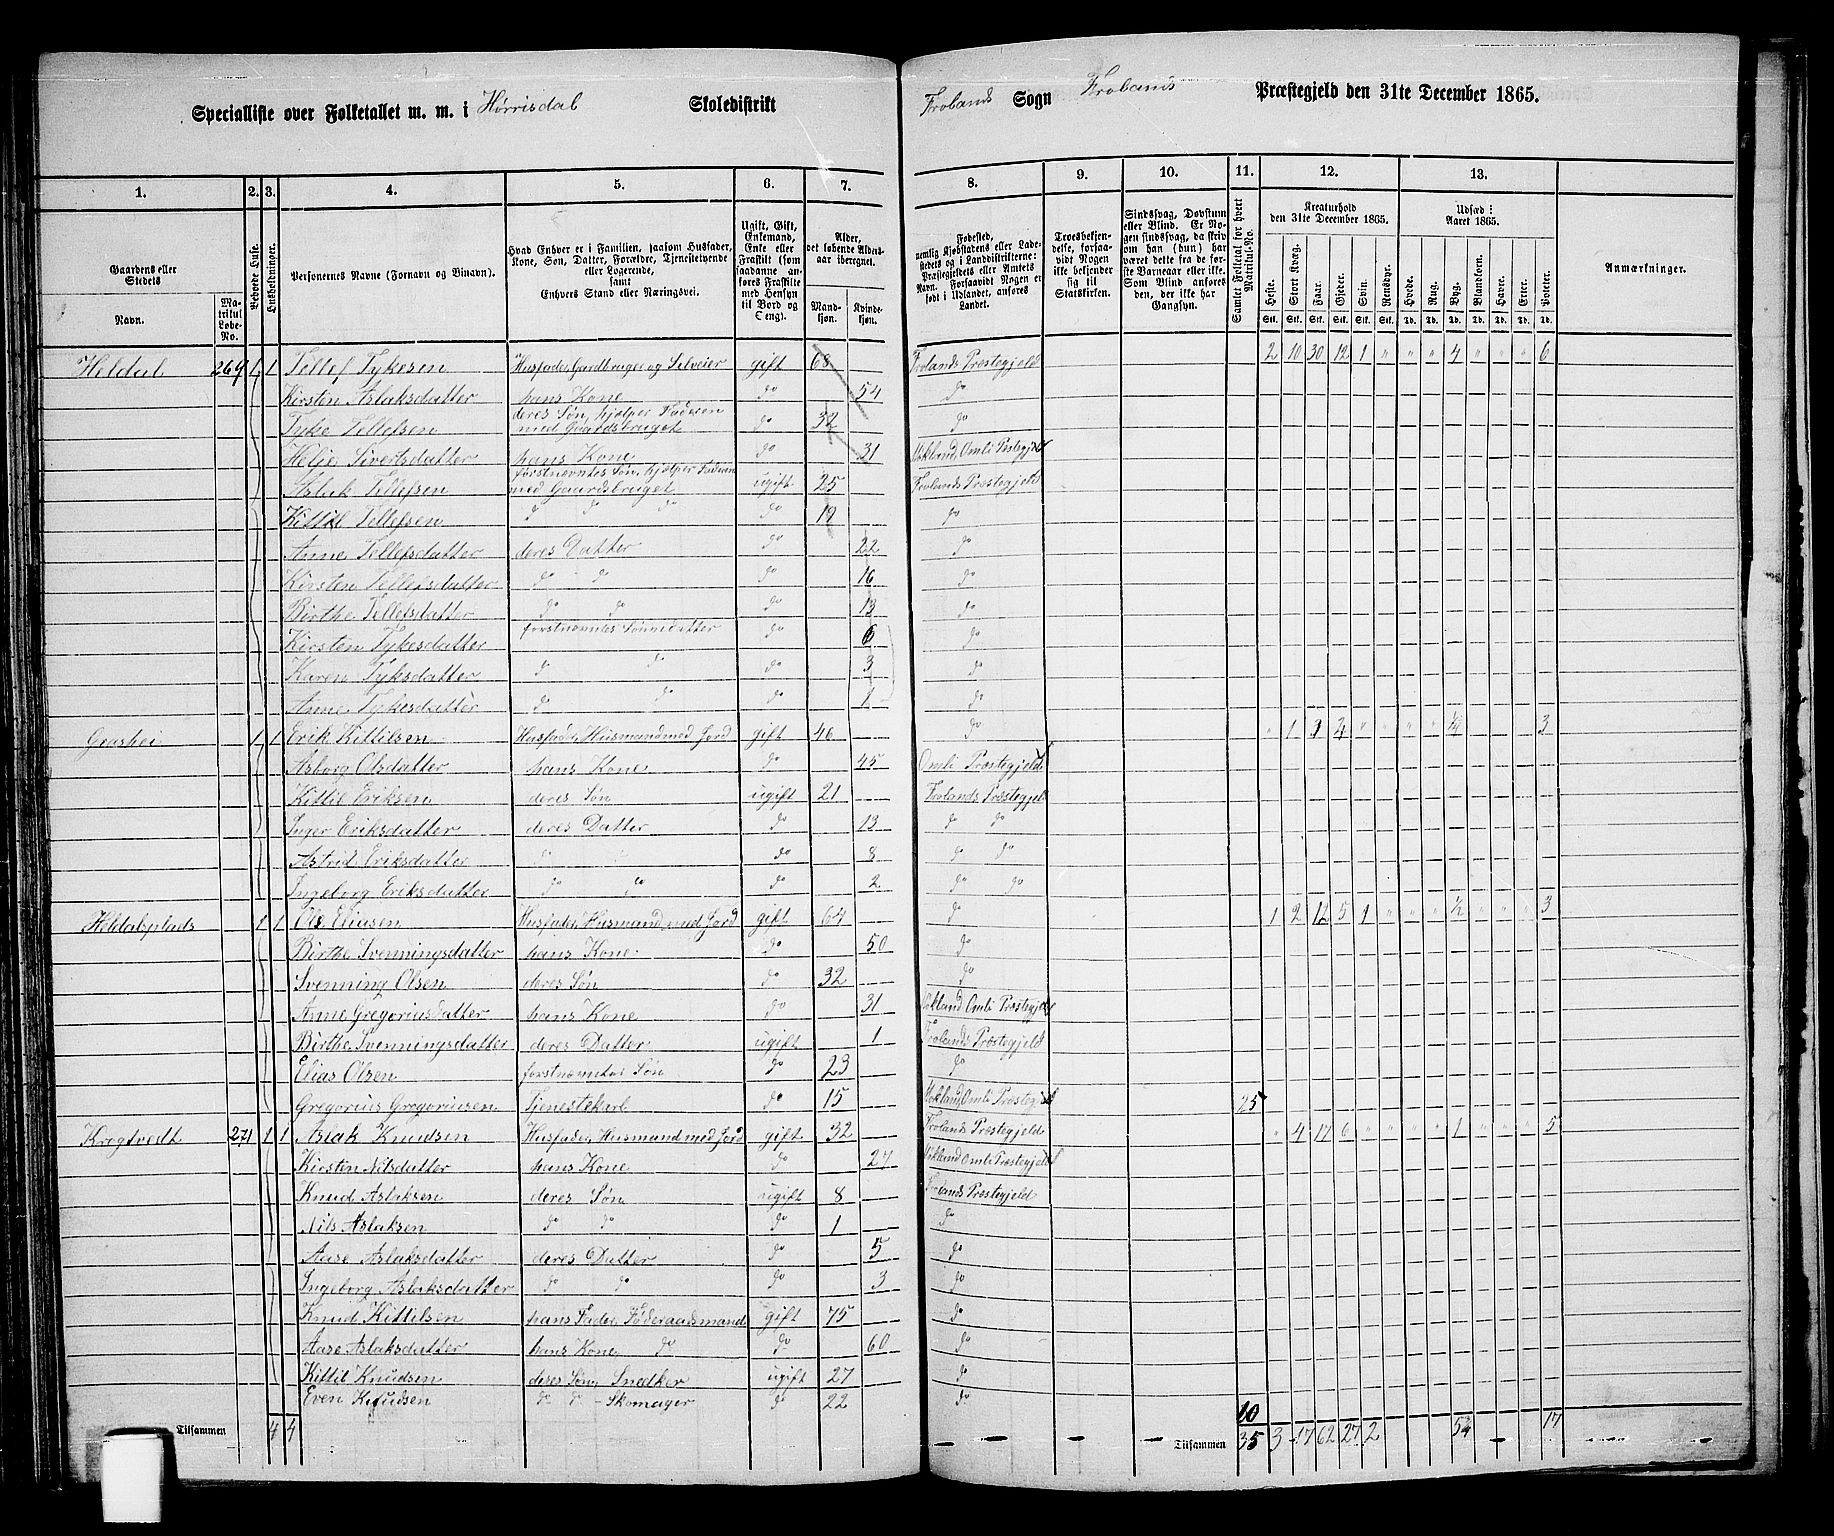 Specialliste over Folketallet m. m. i Hørrisdal Skoledistrikt Frolands Sogn Frolands Præstegjeld den 31te December 1865.
1. 2. 3. 4. 5. 6. 7. 8. 9. 10. 11. 12. 13.
Gaardens eller Stedets Navn. Matrikul Løbe-No. Beboede Huse. Husholdninger. Personernes Navne (Fornavn og Binavn).
Hvad Enhver er i Familien, saasom Husfader, Kone, Søn, Datter, Forældre, Tjenestetyende eller Logerende, samt Enhvers Stand eller Næringsvei.
Ugift, Gift, Enkemand, Enke eller Fraskilt (som saadanne anføres Fraskilte med Hensyn til Bord og Seng).
Alder, det løbende Aldersaar iberegnet. Mandkjøn. Kvindekjøn.
Fødested, nemlig Kjøbstadens eller Ladestedets og i Landdistrikterne: Præstegjeldets eller Amtets Navn. Forsaavidt Nogen er født i Udlandet, anføres Landet.
Troesbekjendelse, forsaavidt Nogen ikke bekjender sig til Statskirken.
Sindssvag, Døvstum eller Blind. Er Nogen sindssvag, da skriv om han (hun) har været dette fra de første Barneaar eller ikke. Som Blind anføres den, der ikke har Gangsyn.
Samlet Folketal for hvert Matrikul-No.
Kreaturhold den 31te December 1865. Heste. Stort Kvæg. Faar. Gjeder. Svin. Rensdyr.
Udsæd i Aaret 1865. Hvede. Rug. Byg. Blandkorn. Havre. Erter. Poteter.
Anmærkninger.
Stk. Stk. Stk. Stk. Stk. Stk. Td. Td. Td. Td. Td. Td. Td.
Heldal 269 1 1 Tellef Tykesen Husfader, Gardbruger og Selveier gift 68 Frolands Præstegjeld 2 10 30 12 1 " " " 4 " " " 6
Kirsten Aslaksdatter hans Kone do 54 do
Tyke Tellefsen deres Søn, hjelper Faderen med Gaardsbruget do 32 do
Helje Sivertsdatter hans Kone do 31 Mykland, Omli Præstegjeld
Aslak Tellefsen førstnevntes Søn, hjelper Faderen med Gaardsbruget ugift 25 Frolands Præstegjeld
Kittil Tellefsen do do do do 19 do
Anne Tellefsdatter deres Datter do 22 do
Kirsten Tellefsdatter do do do 16 do
Birthe Tellefsdatter do do do 13 do
Kirsten Tykesdatter førstnævntes Sønnedatter do 6 do
Karen Tyksdatter do do do 3 do
Anne Tykesdatter do do do 1 do
Grashei 1 1 Erik Kittilsen Husfader, Husmand med Jord gift 46 do " 1 3 4 " " " " 1/4 " " " 3
Asborg Olsdatter hans Kone do 45 Omli Præstegjeld
Kittil Eriksen deres Søn ugift 21 Frolands Præstegjeld
Inger Eriksdatter deres Datter do 13 do do
Astrid Eriksdatter do do 8 do do
Ingeborg Eriksdatter do do do 2 do do
Heldalsplads 1 1 Ole Eliasen Husfader, Husmand med Jord gift 64 do 1 2 12 5 1 " " " 1/2 " " " 3
Birthe Svenningsdatter hans Kone do 50 do
Svenning Olsen deres Søn do 32 do
Anne Gregoriusdatter hans Kone do 31 Mykland Omli Præstegjeld
Birthe Svenningsdatter deres Datter ugift 1 Frolands Præstegjeld
Elias Olsen førstnævntes Søn do 23 do
Gregorius Gregoriusen Tjenestekarl do 15 Mykland, Omli Præstegjeld 25
Krogtvedt 271 1 1 Aslak Knudsen Husfader, Husmand med Jord gift 32 Frolands Præstegjeld " 4 17 6 " " " " 1 " " " 5
Kirsten Nilsdatter hans Kone do 27 Mykland Omli Præstegjeld
Knud Aslaksen deres Søn ugift 8 Frolands Præstegjeld
Nils Aslaksen do do do 1 do
Aase Aslaksdatter deres Datter do 5 do
Ingeborg Aslaksdatter do do do 3 do
Knud Kittilsen hans Fader Føderaadsmand gift 75 do
Aase Aslaksdatter hans Kone do do 60 do
Kittil Knudsen deres Søn, Snedker ugift 27 do
Even Knudsen do do - Skomager do 22 do 10
Tilsammen 4 4 Tilsammen 35 3 17 62 27 2 17